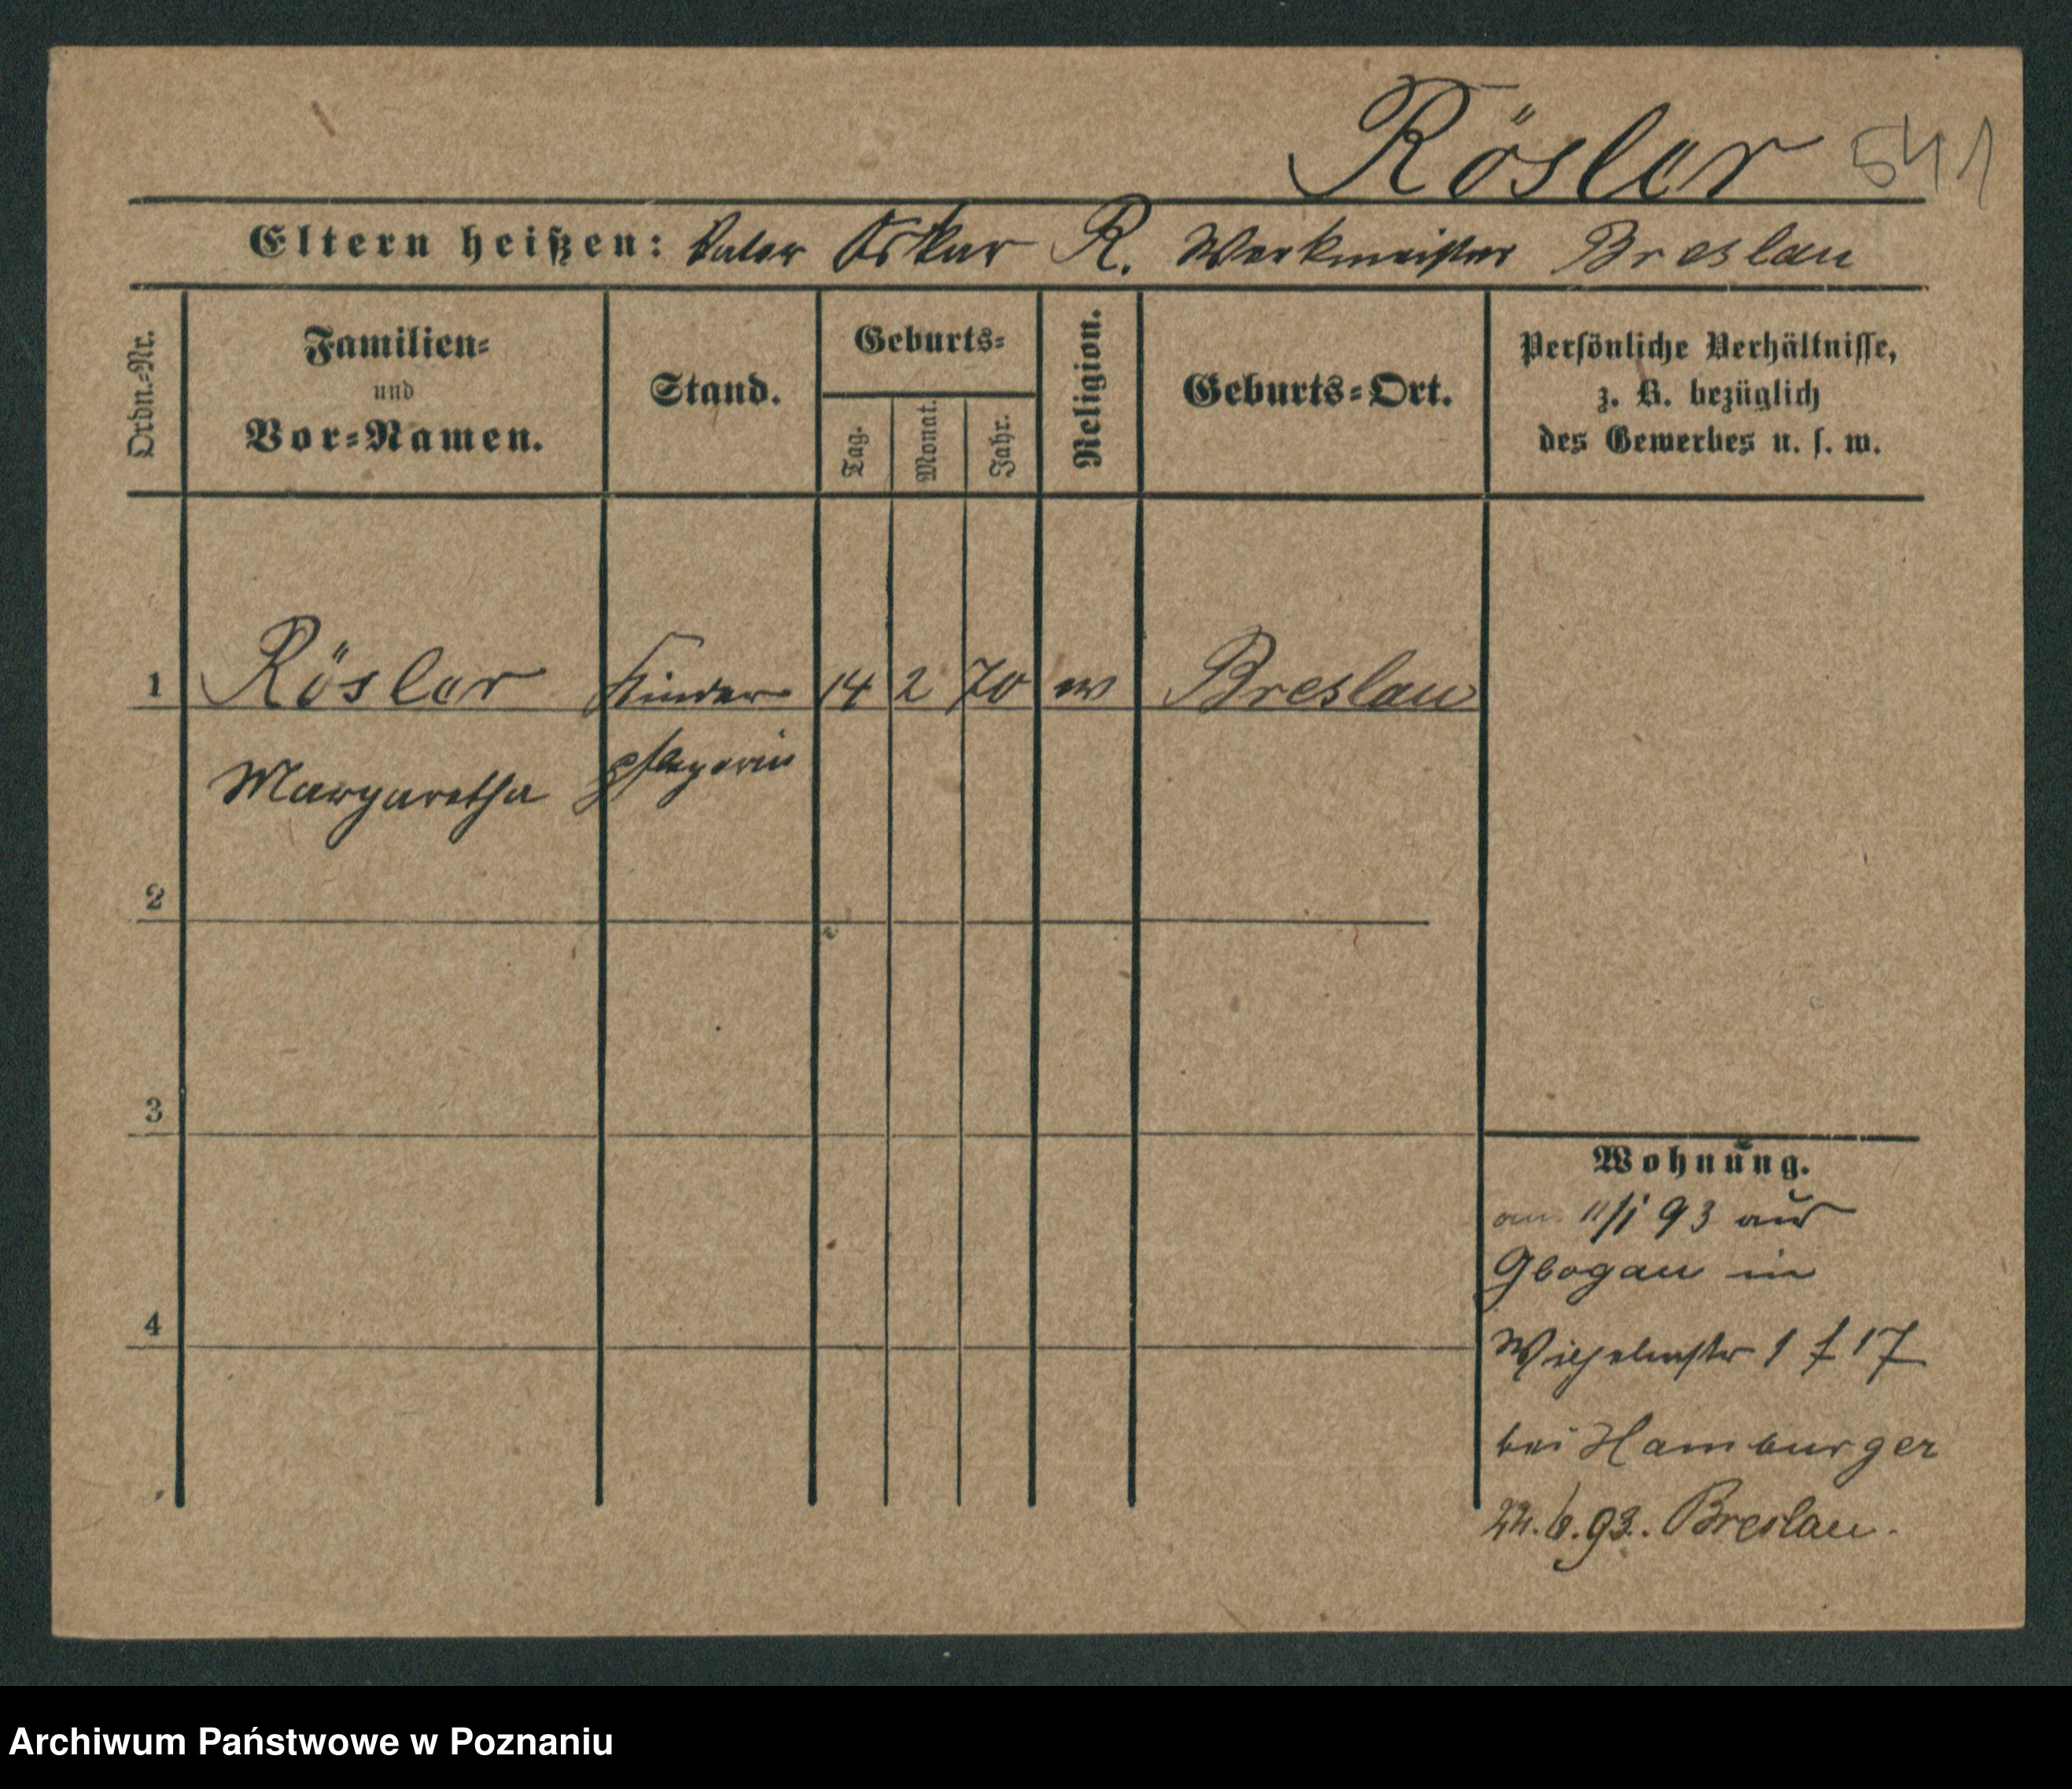 Rösler 541
Eltern heißen: Vater Oskar R. Werkmeister Breslau
Ordn.=Nr.
Familien=
und
Vor=Namen.
Stand.
Geburts=
Tag.
Monat.
Jahr.
Religion.
Geburts=Ort.
Persönliche Verhältnisse,
z. B. bezüglich
des Gewerbes u. s. w.
1 Rösler Kinder 14 2 70 ev Breslau
Margaretha pflegerin
2
3
4
Wohnung.
am 11/1 93 aus
Glogau in
Wilhelmstr 1 f 17
bei Hamburger
6.93. Breslau.
Archiwum Państwowe w Poznaniu